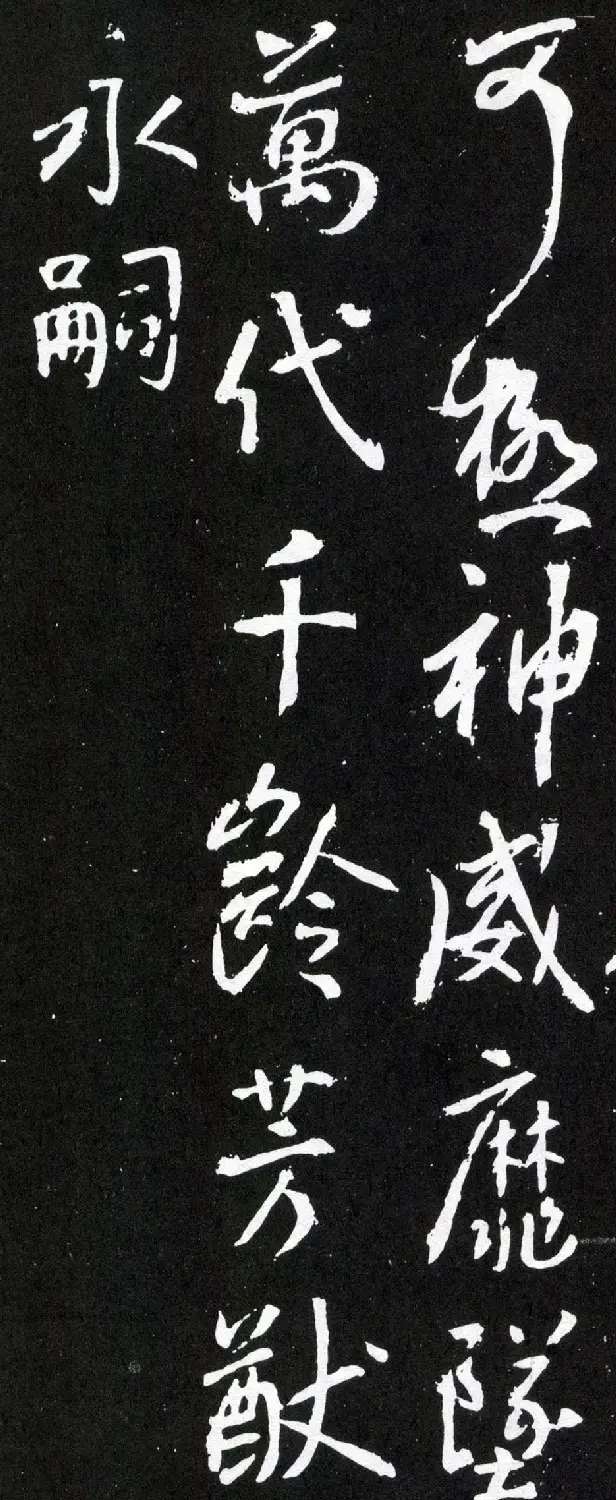 可極神威靡墜
萬代千齡芳猷
永嗣